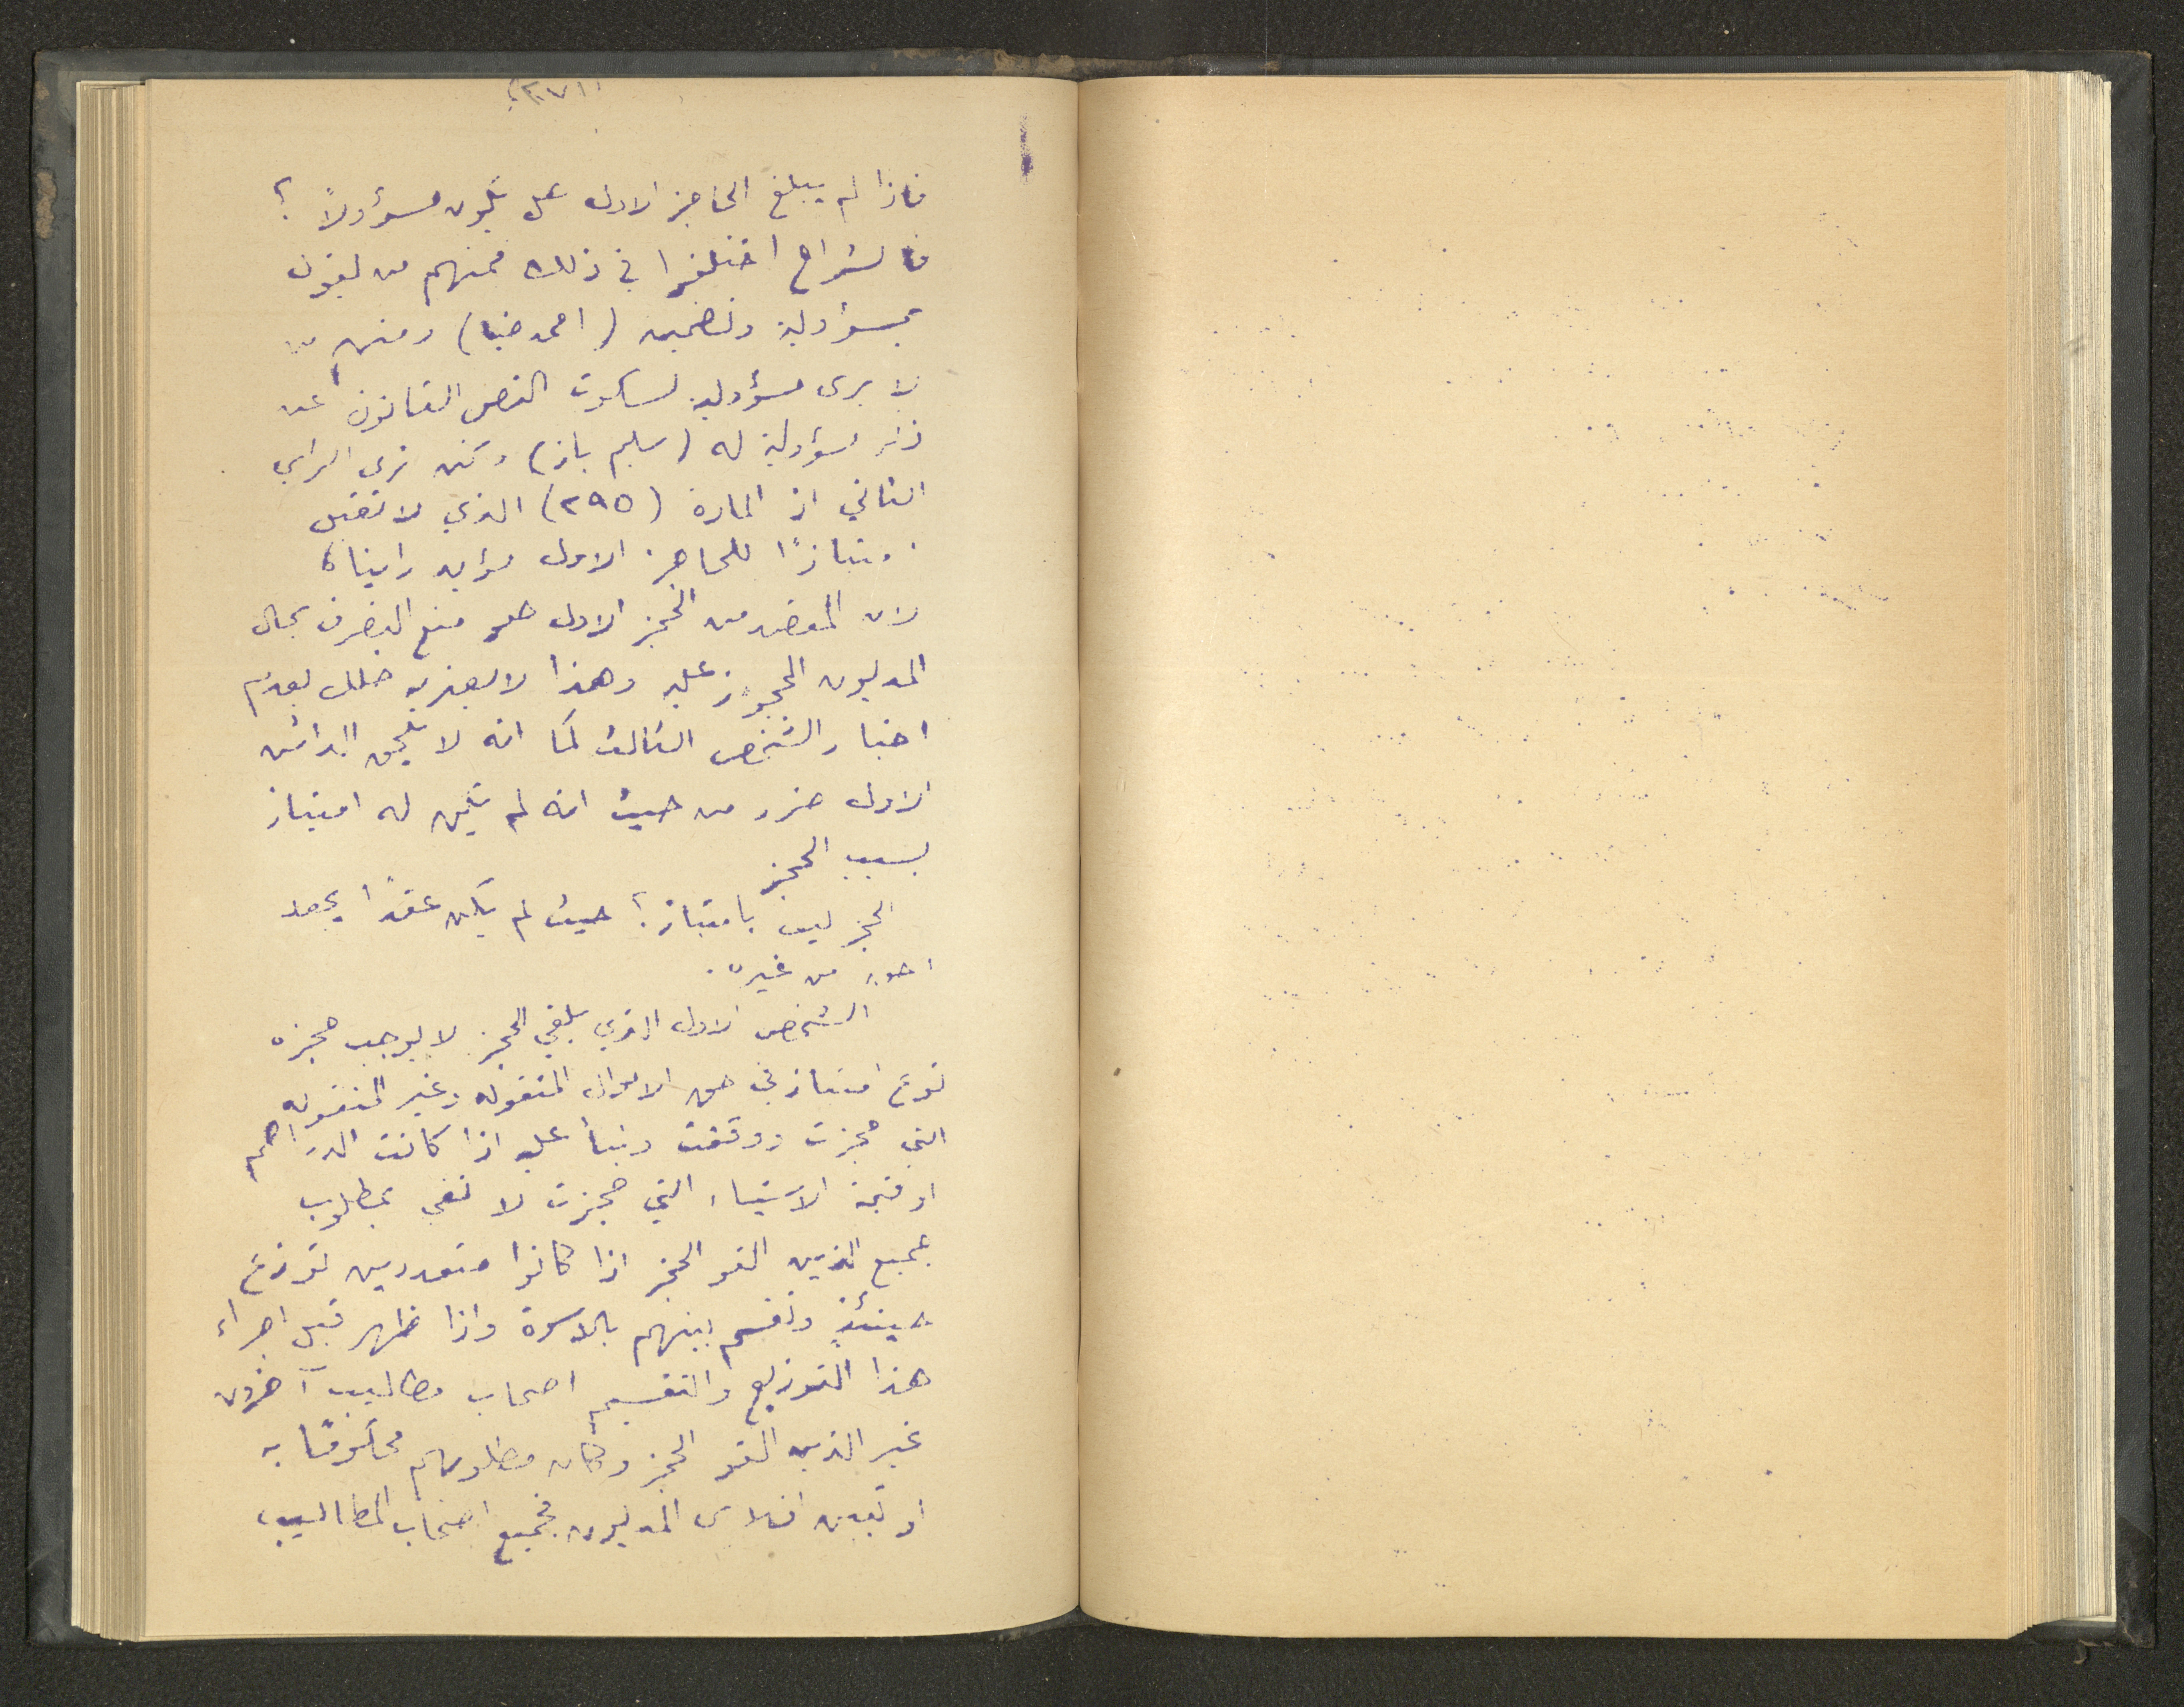 فاذا لم يبلغ الحاجز الاول هل يكون مسؤولاً ؟
فالشراح اختلفوا في ذلك فمنهم من يقول
بمسؤولية وتضمينه (احمد ضيا) ومنهم من
لا يرى مسؤولية لسكوت النص القانوني عن
ذكر مسؤولية له (سليم باز) ولكن نرى الراي
الثاني اذ المادة (٢٩٥) الذي لا تقبل
امتيازًا للحاجز الاول مؤيد راينا،
لان المقصد من الحجز الاول هو منع التصرف بمال
المديون المحجوز عليه وهذا لا يعتريه خلل بعدم
اخبار الشخص الثالث كما انه لا يلحق الدائن
الاول ضرر من حيث انه لم يكن له امتياز
بسبب الحجز
الحجز ليس بامتياز؛ حيث لم يكن عقدًا يجعله
احق من غيره.
الشخص الاول الذي يلقي الحجز لا يوجب حجزه
نوع امتياز في حق الاموال المنقوله وغير المنقوله
التي حجزت ووقفت وبنأ عليه اذا كانت الدراهم
او قيمة الاشياء التي حجزت لا تفي بمطلوب
جميع الذين القو الحجز اذا كانوا متعددين توزع
حينئذٍ وتقسم بينهم بالاسوة واذا ظهر قبل اجراء
هذا التوزيع والتقسيم اصحاب مطاليب آخرون
غير الذين القو الحجز وكان مطلوبهم محكومًا به
او تبين افلاس المديون فجميع اصحاب المطاليب